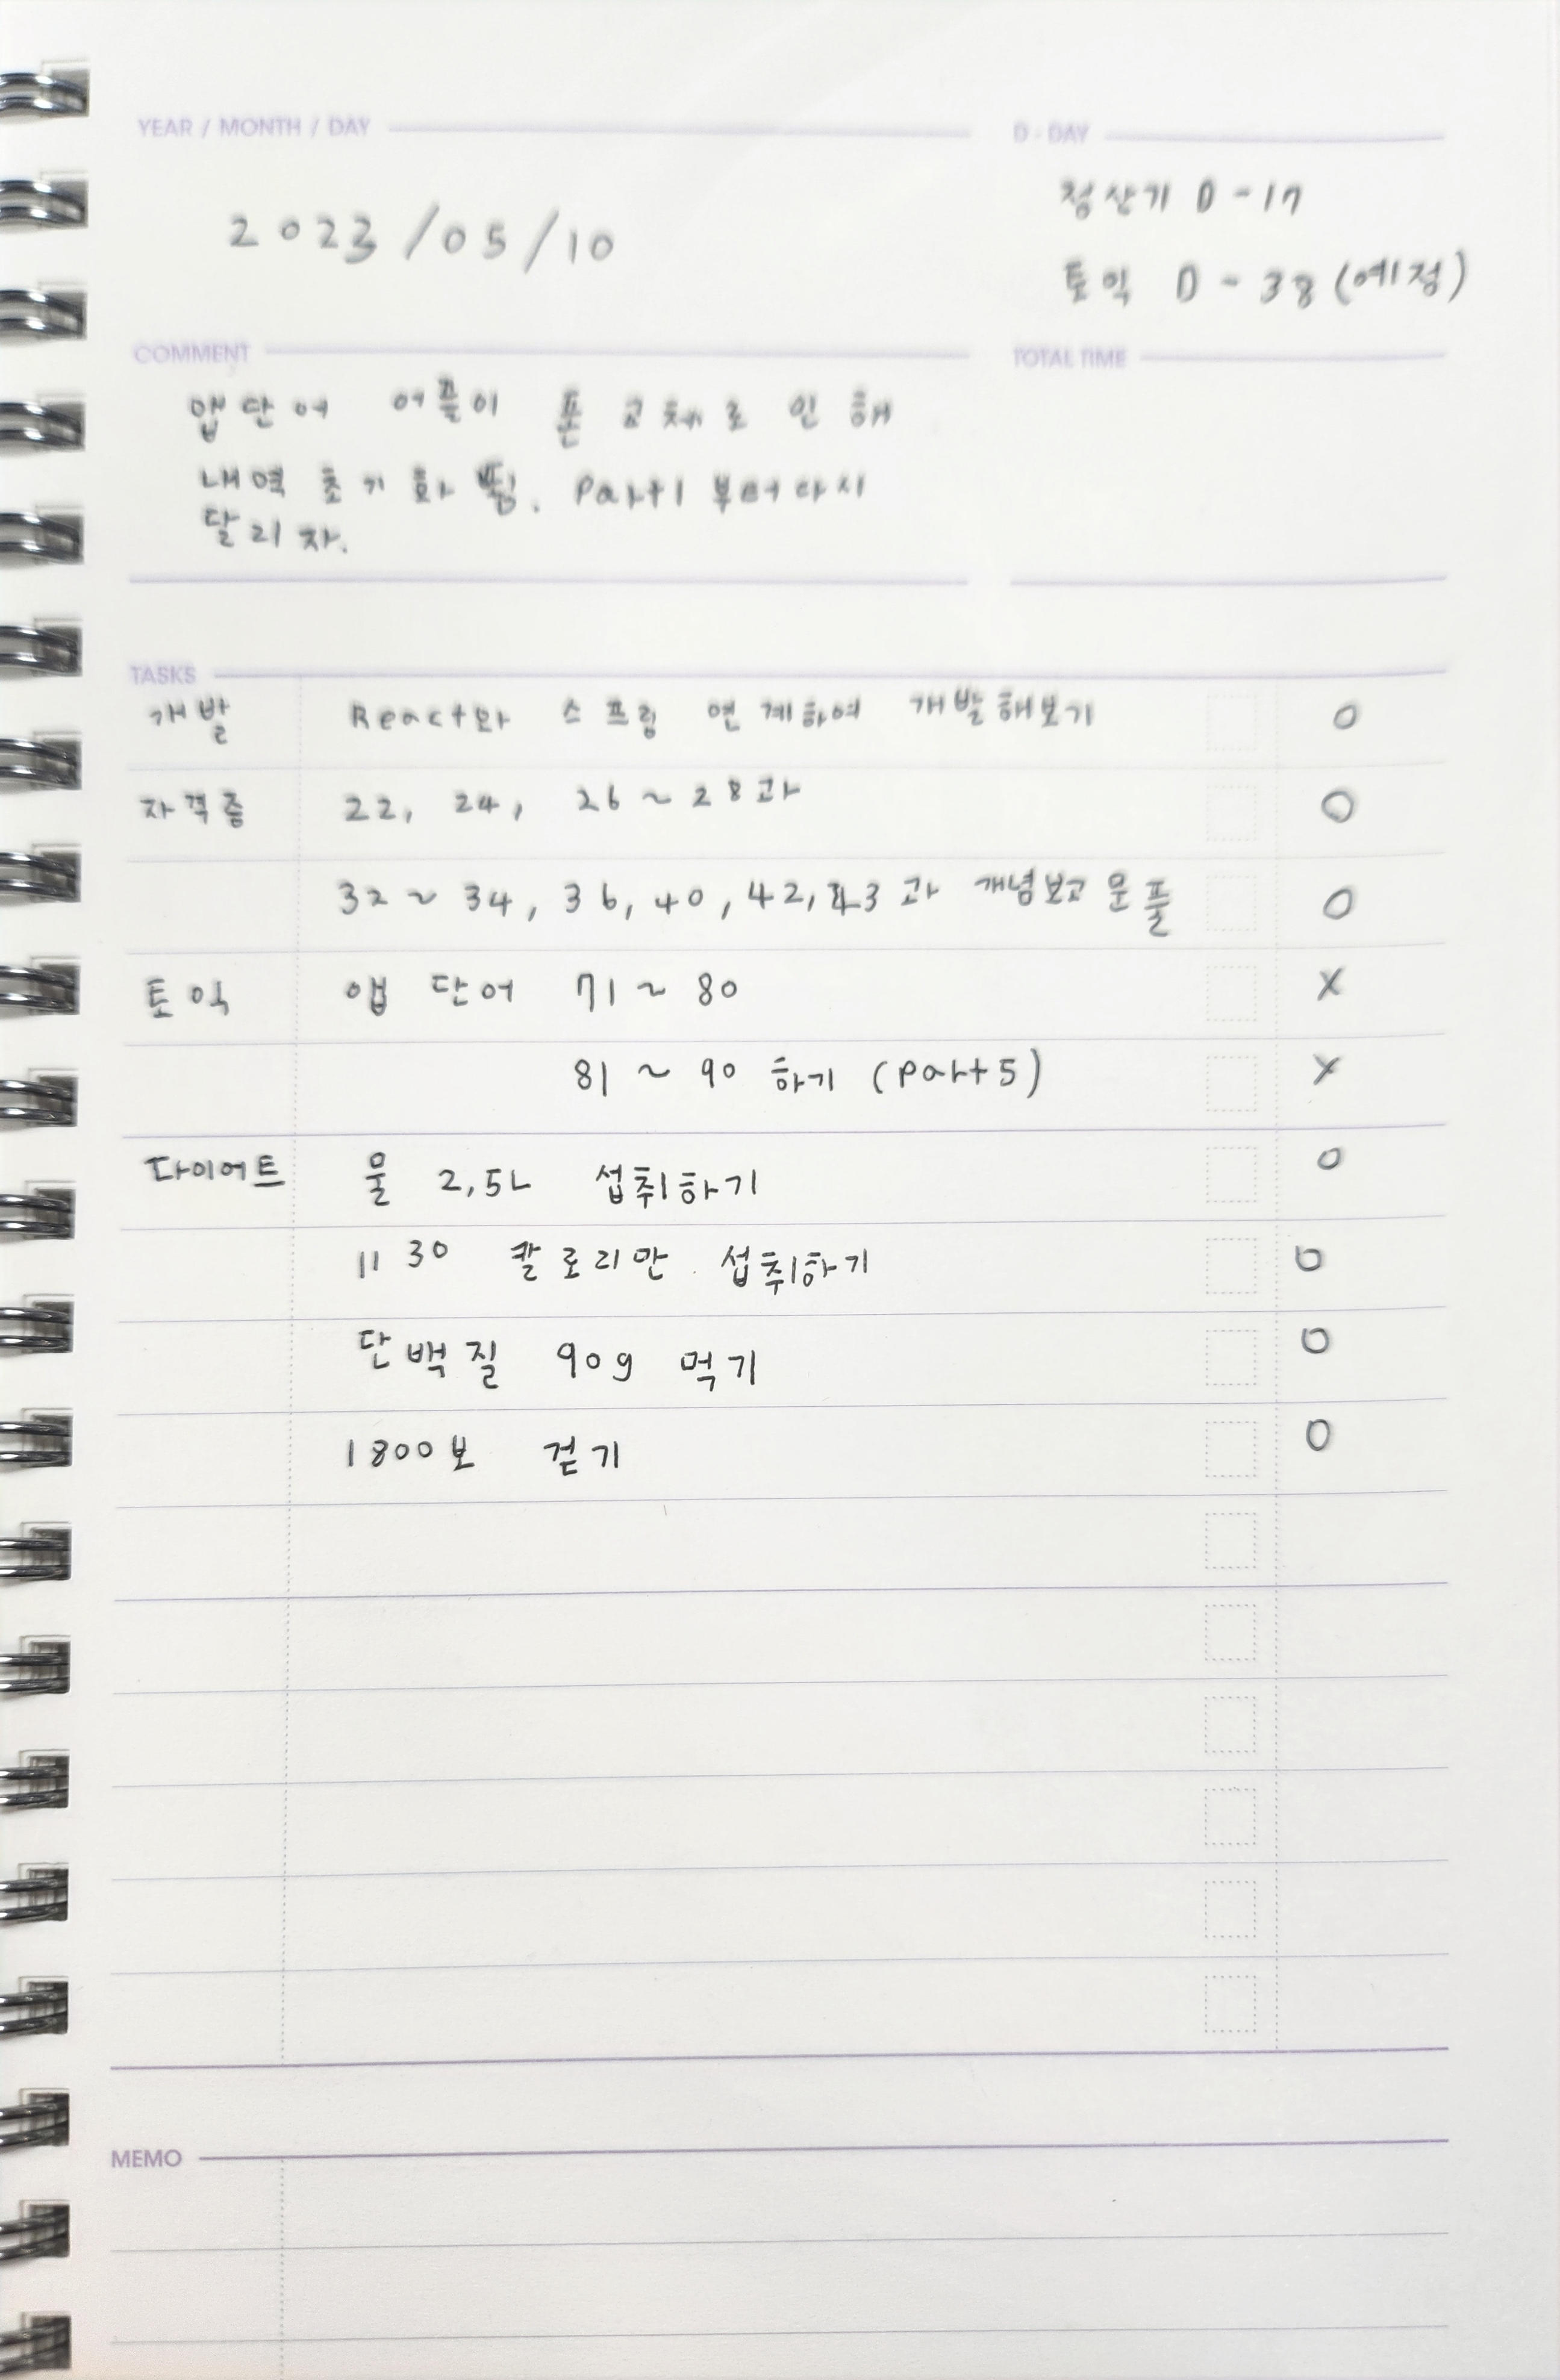 YEAR / MONTH / DAY
2023/05/10
D-DAY
정산기 D-17
토익 D-38 (예정)
COMMENT
앱단어 어플이 폰 교체로 인해
내역 초기화 됨. Part1 부터 다시
달리자.
TOTAL TIME
TASKS
개발 React와 스프링 연계하여 개발해보기 O
자격증 22, 24, 26~28과 O
32~34, 36, 40, 42, 43과 개념보고 문풀 O
토익 앱 단어 71~80 X
81~90 하기 (part5) X
다이어트 물 2,5L 섭취하기 O
1130 칼로리만 섭취하기 O
단백질 90g 먹기 O
1800보 걷기 O
MEMO